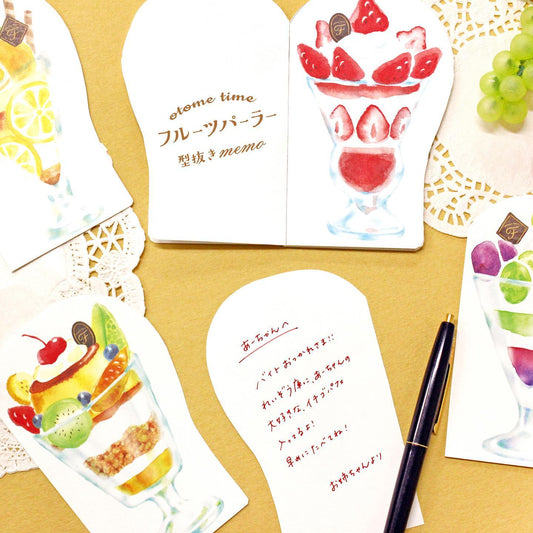 otome time
フルーツパーラー
型抜きmemo
F
F
F
あーちゃんへ
バイトおつかれさま!!
れいぞう庫に、あーちゃんの
大好きな、イチゴパフェ
入ってるよ!
早めにたべてね!
お姉ちゃんより